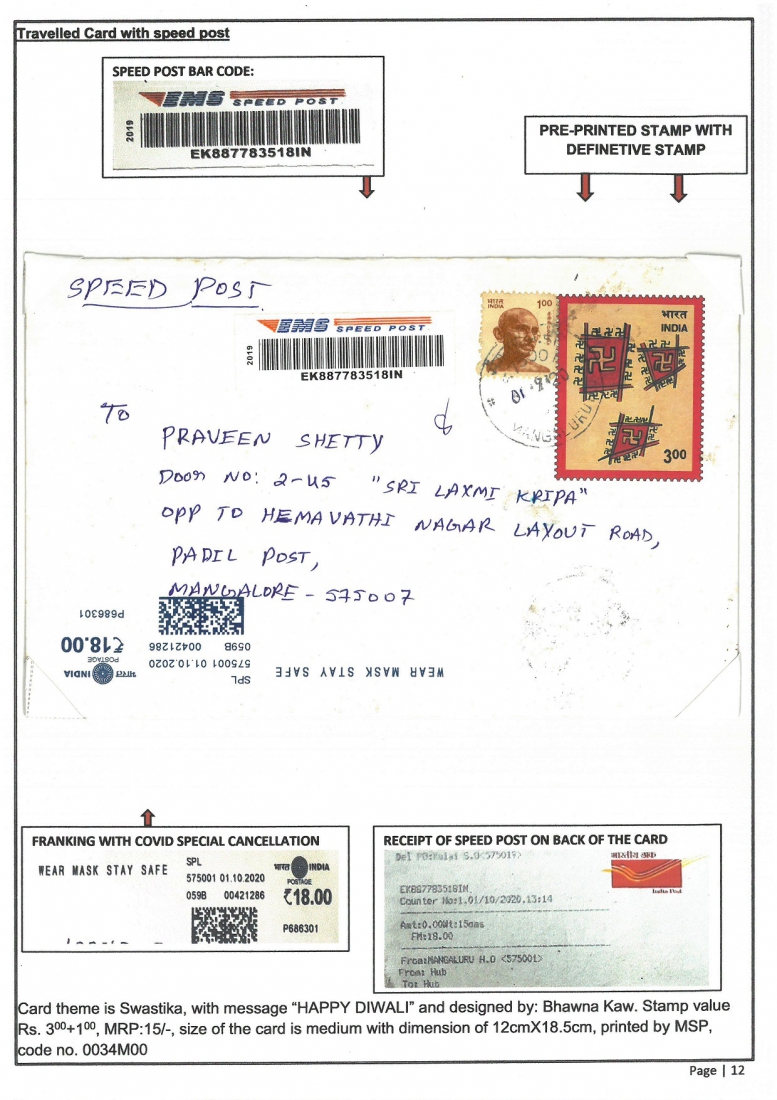 Travelled Card with speed post
SPEED POST BAR CODE:
EMS SPEED POST
2019
EK887783518IN
PRE-PRINTED STAMP WITH
DEFINETIVE STAMP
SPEED POST
EMS SPEED POST
2019
EK887783518IN
भारत
INDIA
1.00
भारत
INDIA
3.00
MANGALURU
TO
PRAVEEN SHETTY
DOOR NO: 2-45 "SRI LAXMI KRIPA"
OPP TO HEMAVATHI NAGAR LAYOUT ROAD,
PADIL POST,
MANGALORE - 575007
WEAR MASK STAY SAFE
SPL
575001 01.10.2020
059B 00421286
भारत INDIA
POSTAGE
₹18.00
P686301
FRANKING WITH COVID SPECIAL CANCELLATION
WEAR MASK STAY SAFE
SPL
575001 01.10.2020
059B 00421286
भारत INDIA
POSTAGE
₹18.00
P686301
RECEIPT OF SPEED POST ON BACK OF THE CARD
Del PO:Kulai S.O<575019>
भारतीय डाक
India Post
EK887783518IN
Counter No:1,01/10/2020,13:14
Amt:0.00Wt:15gms
FM:18.00
From:MANGALURU H.O <575001>
From: Hub
To: Hub
Card theme is Swastika, with message “HAPPY DIWALI” and designed by: Bhawna Kaw. Stamp value
Rs. 3⁰⁰+1⁰⁰, MRP:15/-, size of the card is medium with dimension of 12cmX18.5cm, printed by MSP,
code no. 0034M00
Page | 12